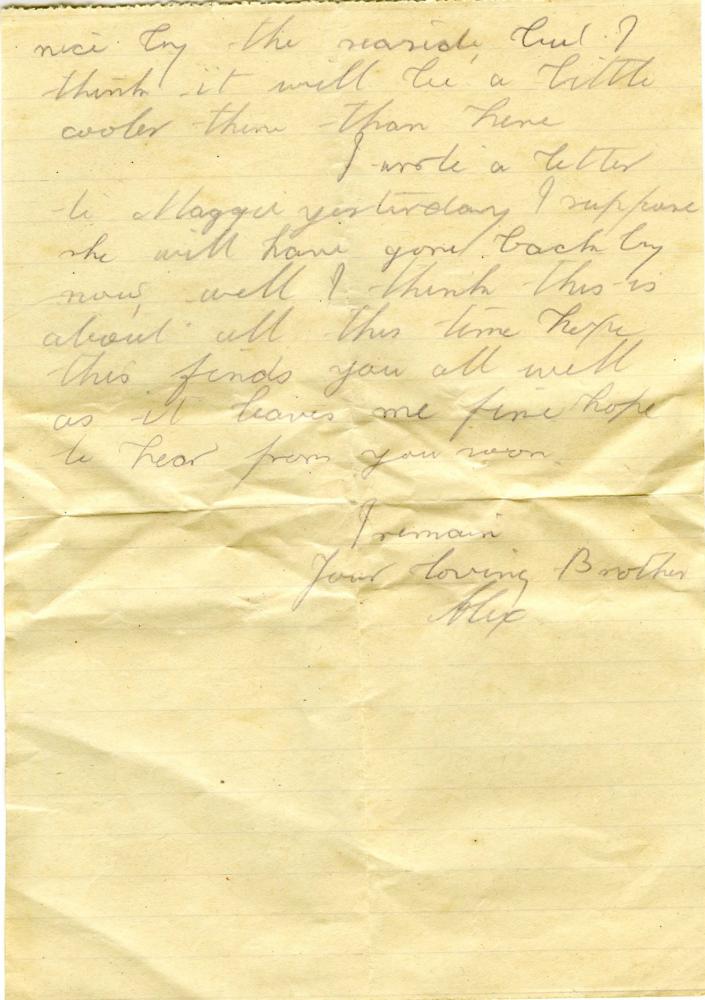 nice by the seaside but I
think it will be a little
cooler there than here
I wrote a letter
to Maggie yesterday I suppose
she will have gone back by
now, well I think this is
about all this time hope
this finds you all well
as it leaves me fine hope
to hear from you soon.
I remain
Your loving Brother
Alex